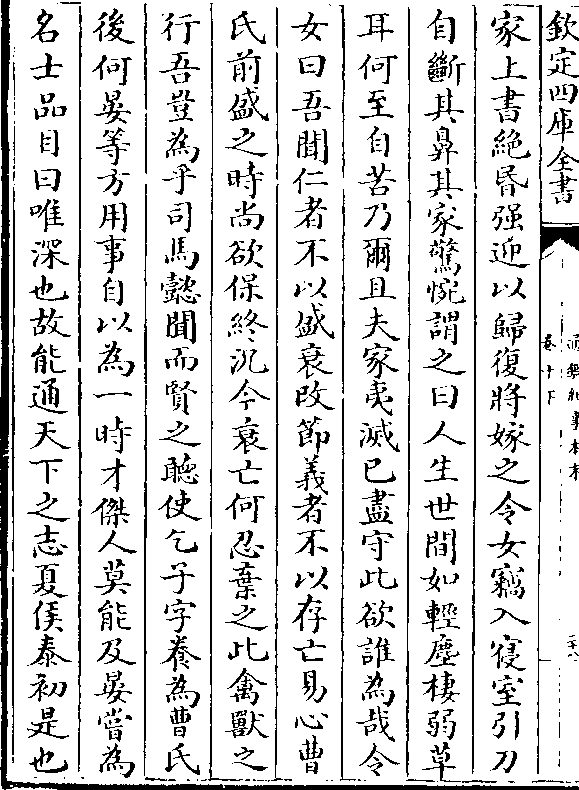 欽定四庫全書
通鑑紀事本末
卷十下
家上書絶昏强迎以歸復將嫁之令女竊入寢室引刀
自斷其鼻其家驚惋謂之曰人生世間如輕塵棲弱草
耳何至自苦乃爾且夫家夷滅已盡守此欲誰為哉令
女曰吾聞仁者不以盛衰改節義者不以存亡易心曹
氏前盛之時尚欲保終况今衰亡何忍棄之此禽獸之
行吾豈為乎司馬懿聞而賢之聽使乞子字養為曹氏
後何晏等方用事自以為一時才傑人莫能及晏嘗為
名士品目曰唯深也故能通天下之志夏侯泰初是也